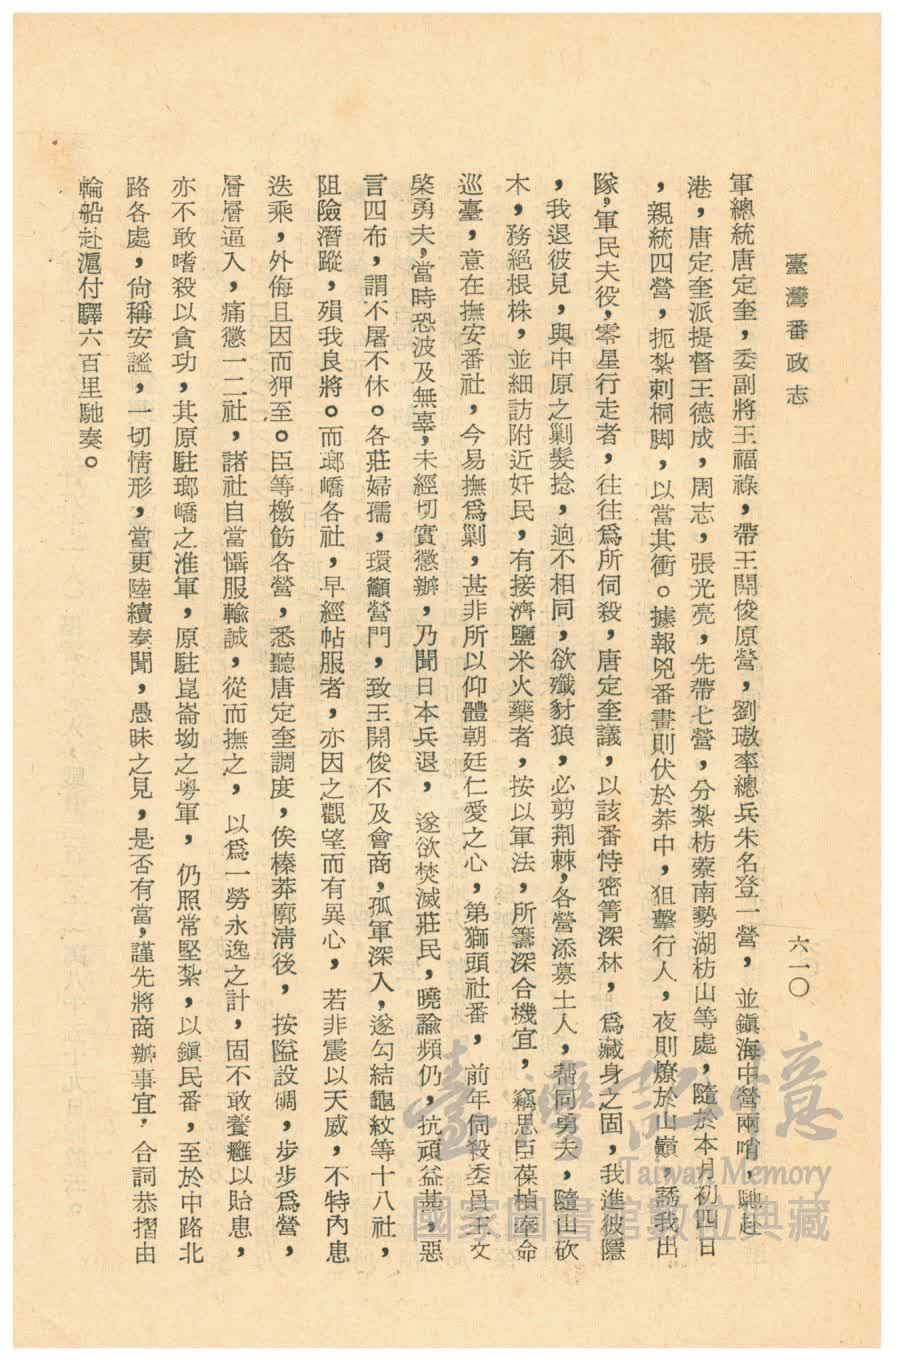 臺灣番政志
六一〇
軍總統唐定奎，委副將王福祿，帶王開俊原營，劉璈率總兵朱名登一營，並鎮海中營兩哨，馳赴
港，唐定奎派提督王德成，周志，張光亮，先帶七營，分紮枋藔南勢湖枋山等處，隨於本月初四日
，親統四營，扼紮刺桐脚，以當其衝。據報兇番晝則伏於莽中，狙擊行人，夜則燎於山巔，誘我出
隊，軍民夫役，零星行走者，往往爲所伺殺，唐定奎議，以該番恃密箐深林，爲藏身之固，我進彼隱
，我退彼見，與中原之剿髮捻，逈不相同，欲殲豺狼，必剪荆棘，各營添募土人，帮同勇夫，隨山砍
木，務絕根株，並細訪附近奸民，有接濟鹽米火藥者，按以軍法，所籌深合機宜，竊思臣葆楨奉命
巡臺，意在撫安番社，今易撫爲剿，甚非所以仰體朝廷仁愛之心，第獅頭社番，前年伺殺委員王文
棨勇夫，當時恐波及無辜，未經切實懲辦，乃聞日本兵退，遂欲焚滅莊民，曉諭頻仍，抗頑益甚，惡
言四布，謂不屠不休。各莊婦孺，環籲營門，致王開俊不及會商，孤軍深入，遂勾結龜紋等十八社，
阻險潛蹤，殞我良將。而瑯嶠各社，早經帖服者，亦因之觀望而有異心，若非震以天威，不特內患
迭乘，外侮且因而狎至。臣等檄飭各營，悉聽唐定奎調度，俟榛莽廓清後，按隘設碉，步步爲營，
層層逼入，痛懲一二社，諸社自當懾服輸誠，從而撫之，以爲一勞永逸之計，固不敢養癰以貽患，
亦不敢嗜殺以貪功，其原駐瑯嶠之淮軍，原駐崑崙坳之粵軍，仍照常堅紮，以鎮民番，至於中路北
路各處，尙稱安謐，一切情形，當更陸續奏聞，愚昧之見，是否有當，謹先將商辦事宜，合詞恭摺由
輪船赴滬付驛六百里馳奏。
臺灣記憶
Taiwan Memory
國家圖書館數位典藏